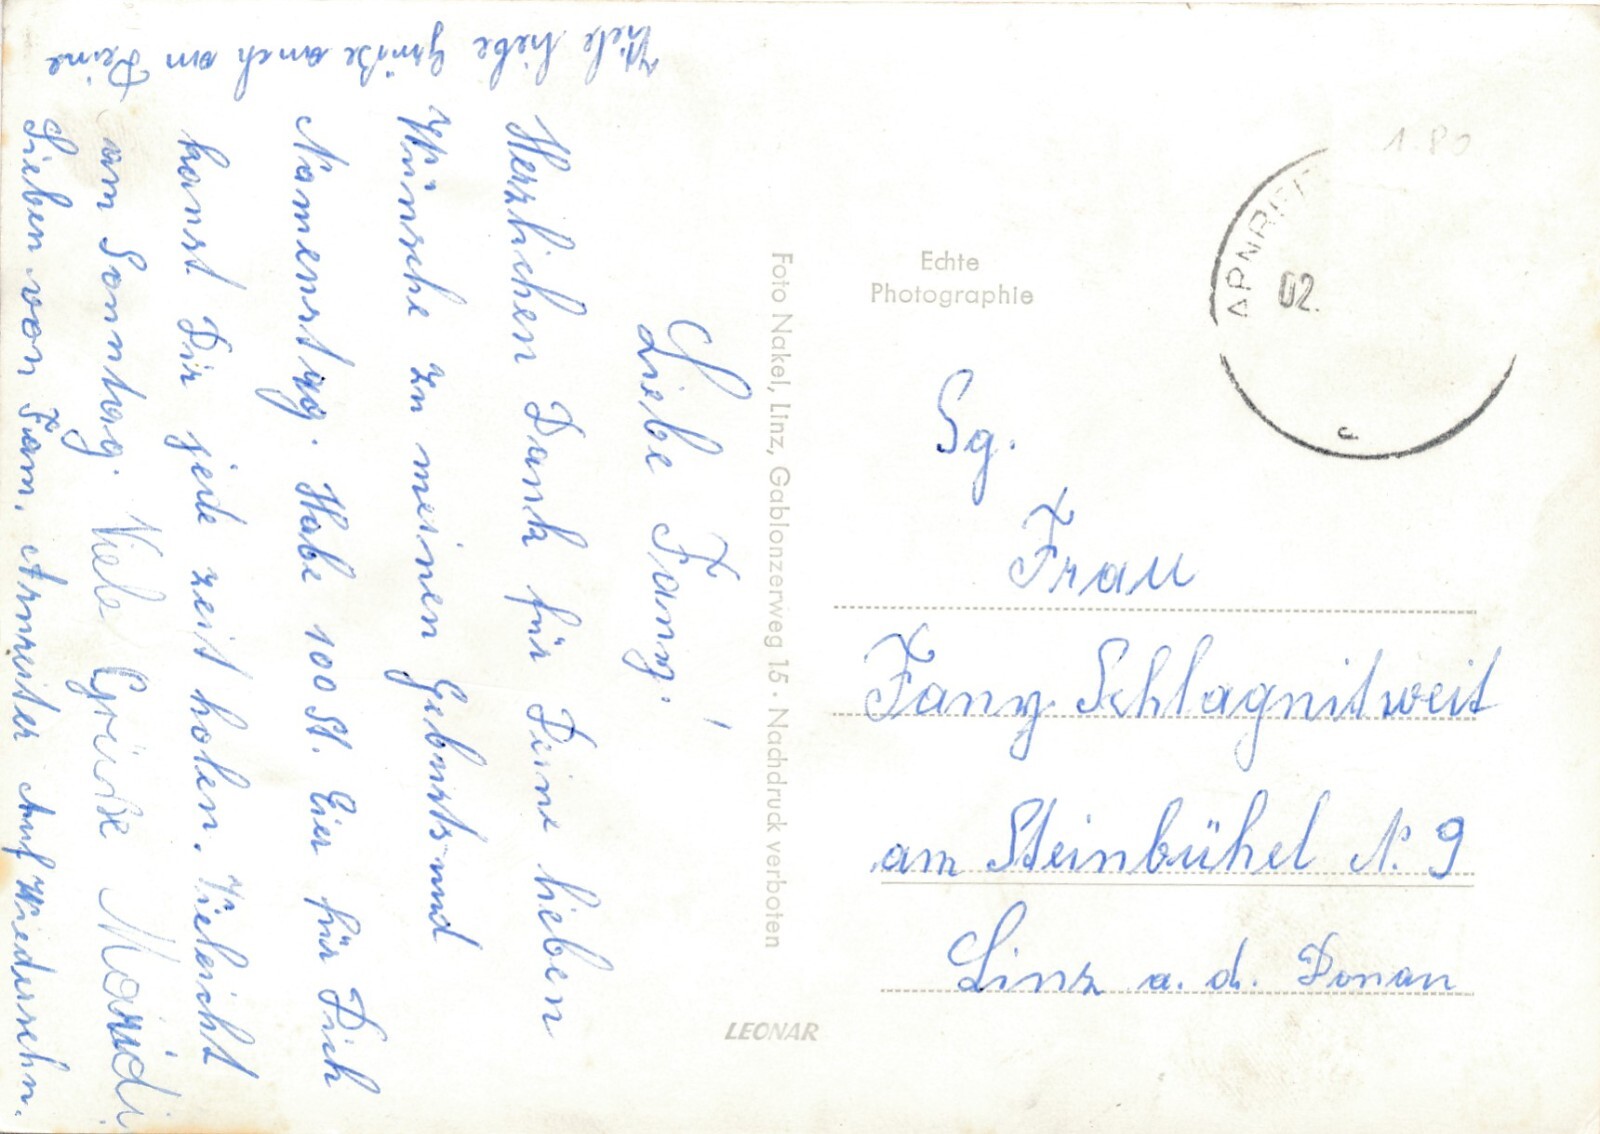 Liebe Fany!
Herzlichen Dank für Deine lieben
Wünsche zu meinen Geburts-und
Namenstag. Habe 100 St. Eier für Dich
kanst Dir jede zeit holen. Vieleicht
am Sonntag. Viele Grüße Maridi
Viele liebe Grüße auch an Deine
Lieben von Fam. Arnreiter Auf Wiedersehn.
Foto Nakel, Linz, Gablonzerweg 15 · Nachdruck verboten
Echte
Photographie
1.80
02.
c
Sg.
Frau
Fany Schlagnitweit
am Steinbühel N. 9
Linz a. d. Donau
LEONAR